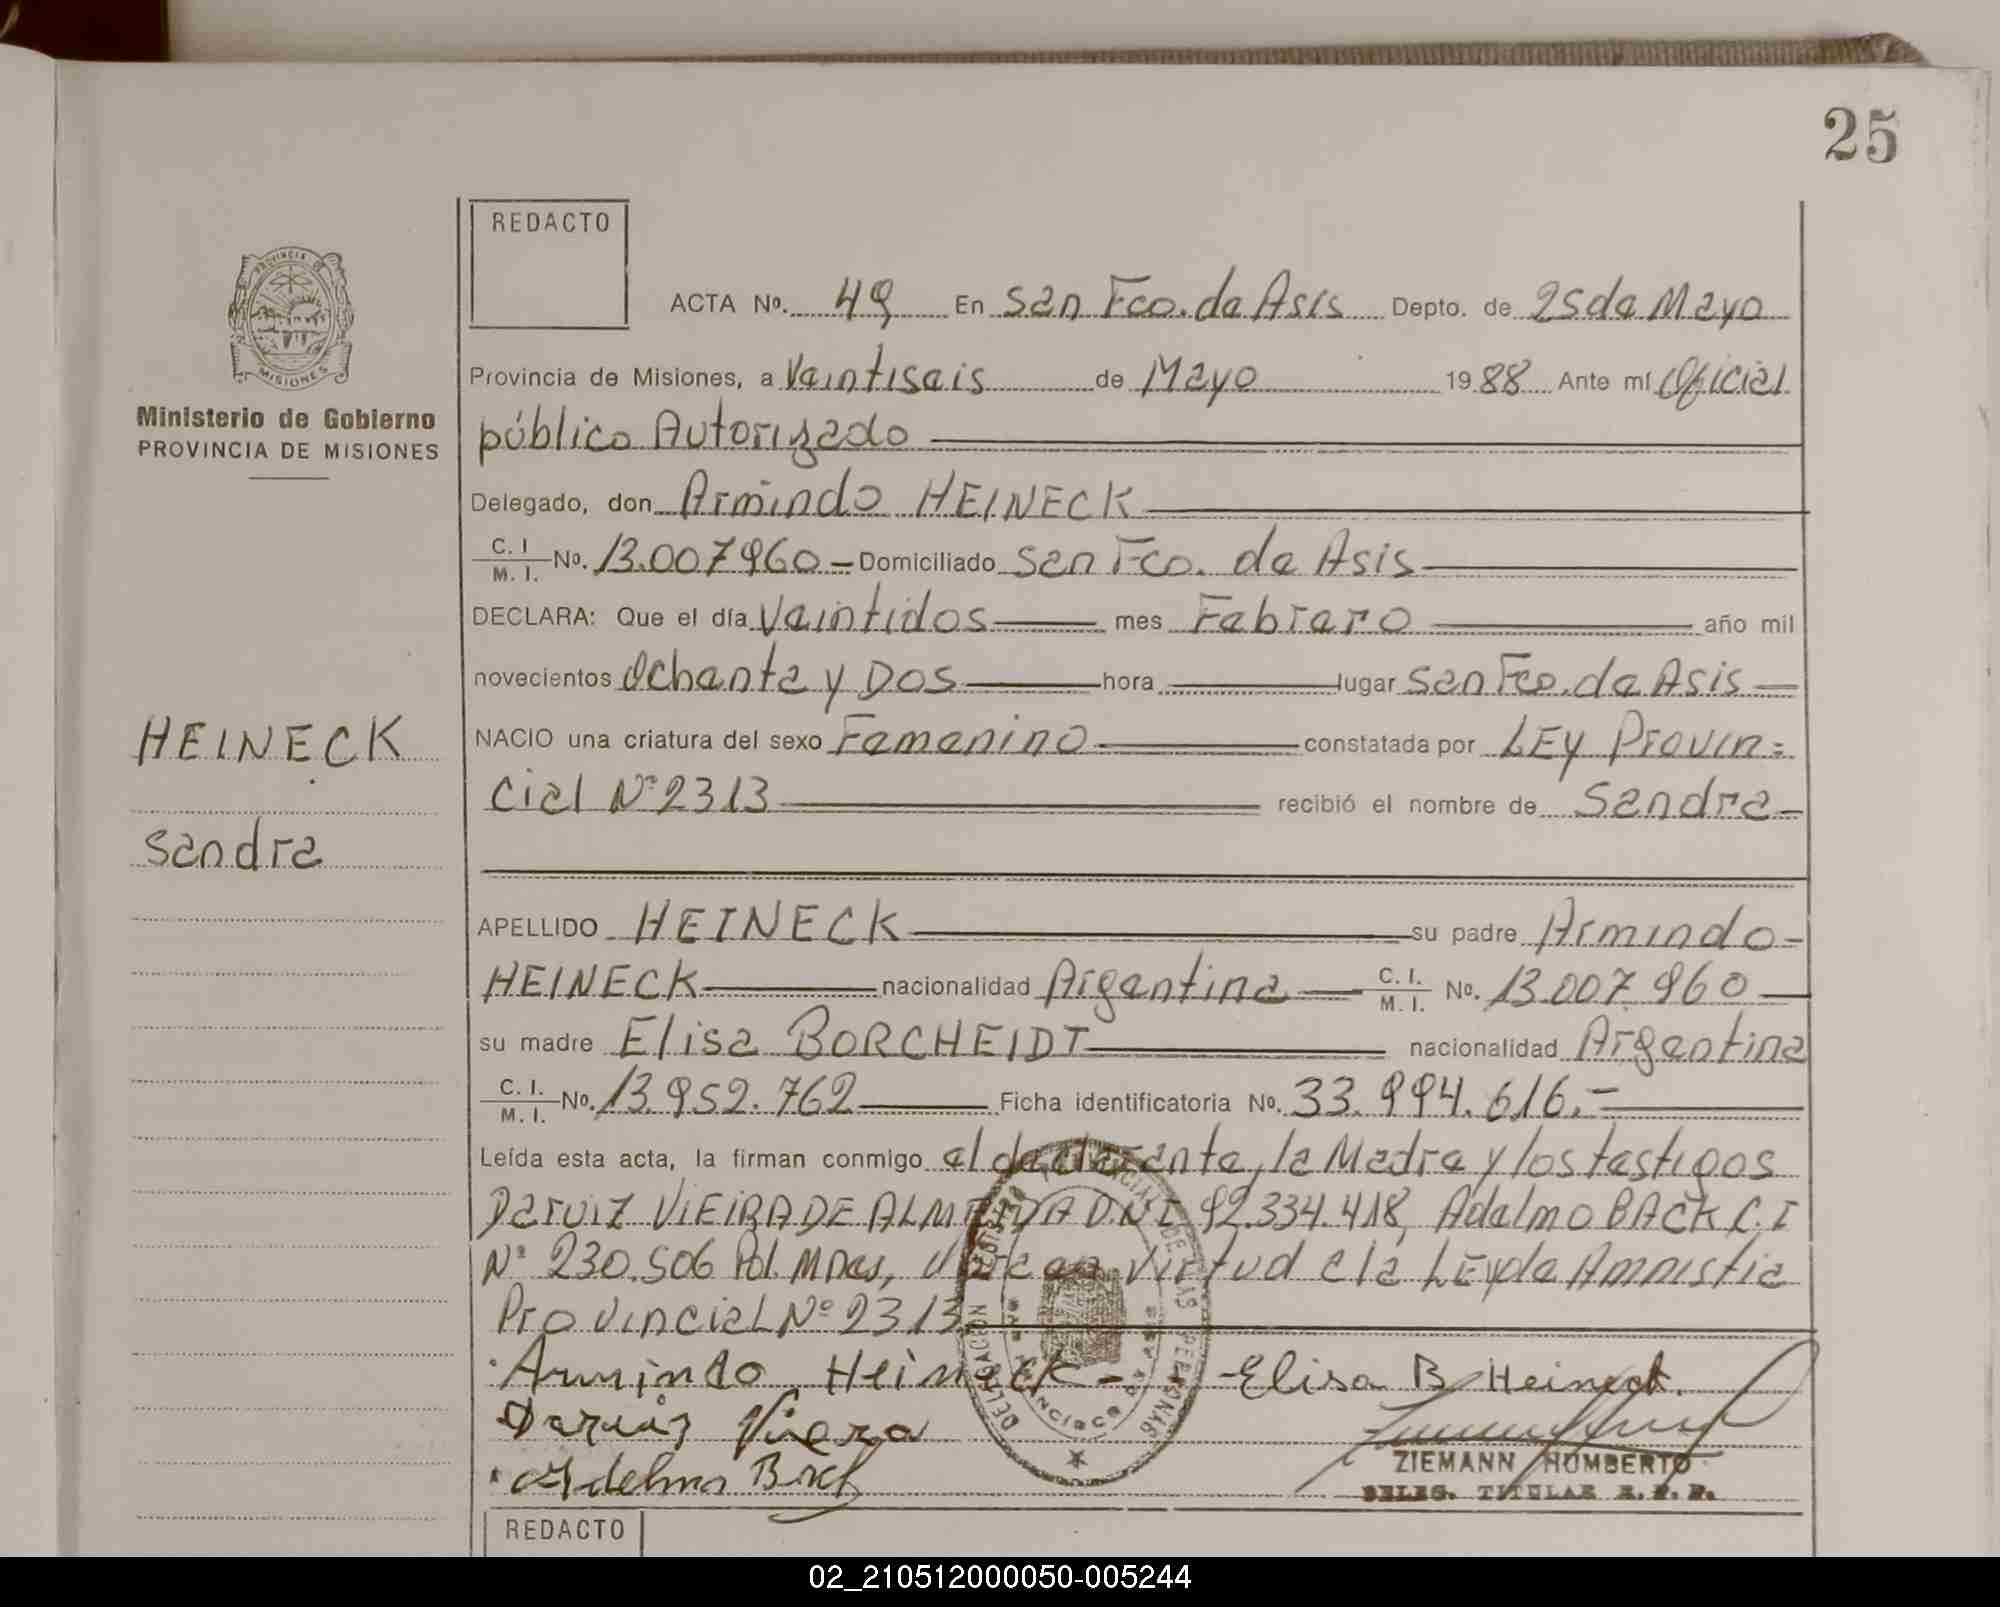 25
REDACTO
ACTA Nº. 49 En San Fco. de Asis Depto. de 25 de Mayo
PROVINCIA DE
MISIONES
Provincia de Misiones, a Veintiseis de Mayo 1988 Ante mí Oficial
Ministerio de Gobierno
PROVINCIA DE MISIONES
público Autorizado
Delegado, don Armindo HEINECK
C. I. M. I. No. 13.007960 - Domiciliado San Fco. de Asis
DECLARA: Que el día Veintidos mes Febrero año mil
novecientos Ochenta y Dos hora lugar San Fco. de Asis
HEINECK
NACIO una criatura del sexo Femenino constatada por LEY Provin=
cial Nº 2313 recibió el nombre de Sandra
Sandra
APELLIDO HEINECK su padre Armindo
HEINECK nacionalidad Argentina C. I. M. I. No. 13.007.960
su madre Elisa BORCHEIDT nacionalidad Argentina
C. I. M. I. No. 13.952.762 Ficha identificatoria No. 33.994.616.-
Leída esta acta, la firman conmigo el declarante, la Madre y los testigos
Daruiz VIEIRA DE ALMEIDA D.N.I. 92.334.418, Adelmo BACK C.I
Nº 230.506 Pol. Mnes, en Virtud a la LEY de Amnistia
Provincial Nº 2313
Armindo Heineck - Elisa B Heineck.
Viera
Adelmo Back
ZIEMANN HUMBERTO
DELEG. TITULAR R. P. P.
DELEGACION REGISTRO PROVINCIAL DE LAS PERSONAS
SAN FRANCISCO DE ASIS
REDACTO
02_210512000050-005244